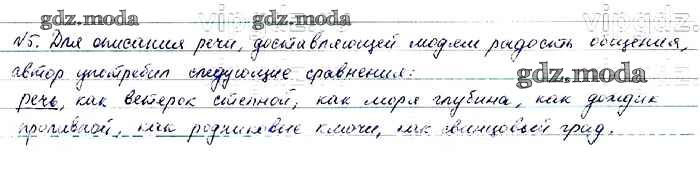 gdz.moda
gdz.moda
vipgdz
№5. Для описания речи, доставляющей людям радость общения,
автор употребил следующие сравнения:
gdz.moda
речь, как ветерок степной, как моря глубина, как дождик
проливной, как родниковые ключи, как свинцовый град.